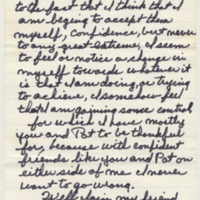 to the fact that I think that I
am beging to accept them
myself, Confidence, but never
to any great extreme, I seem
to feel or notice a change in
myself towards whatever it
is that I am doing, or trying
to achieve, I somehow feel
that I am gaining some control
for which I have mostly
you and Pat to be thankful
for, because with confident
friends like you and Pat on
either side of me I never
want to go wrong.
Well again my friend